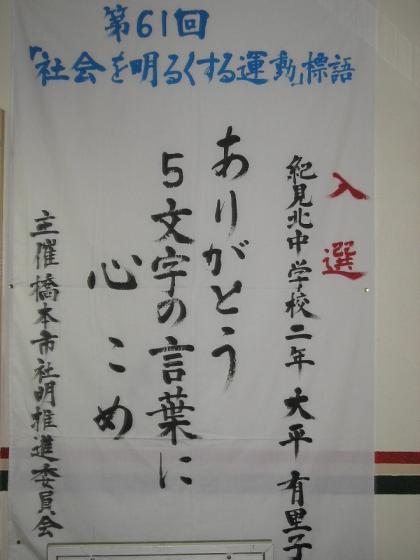 第61回
「社会を明るくする運動」標語
入選
紀見北中学校二年 大平 有里子
ありがとう
5文字の言葉に
心こめ
主催橋本市社明推進委員会